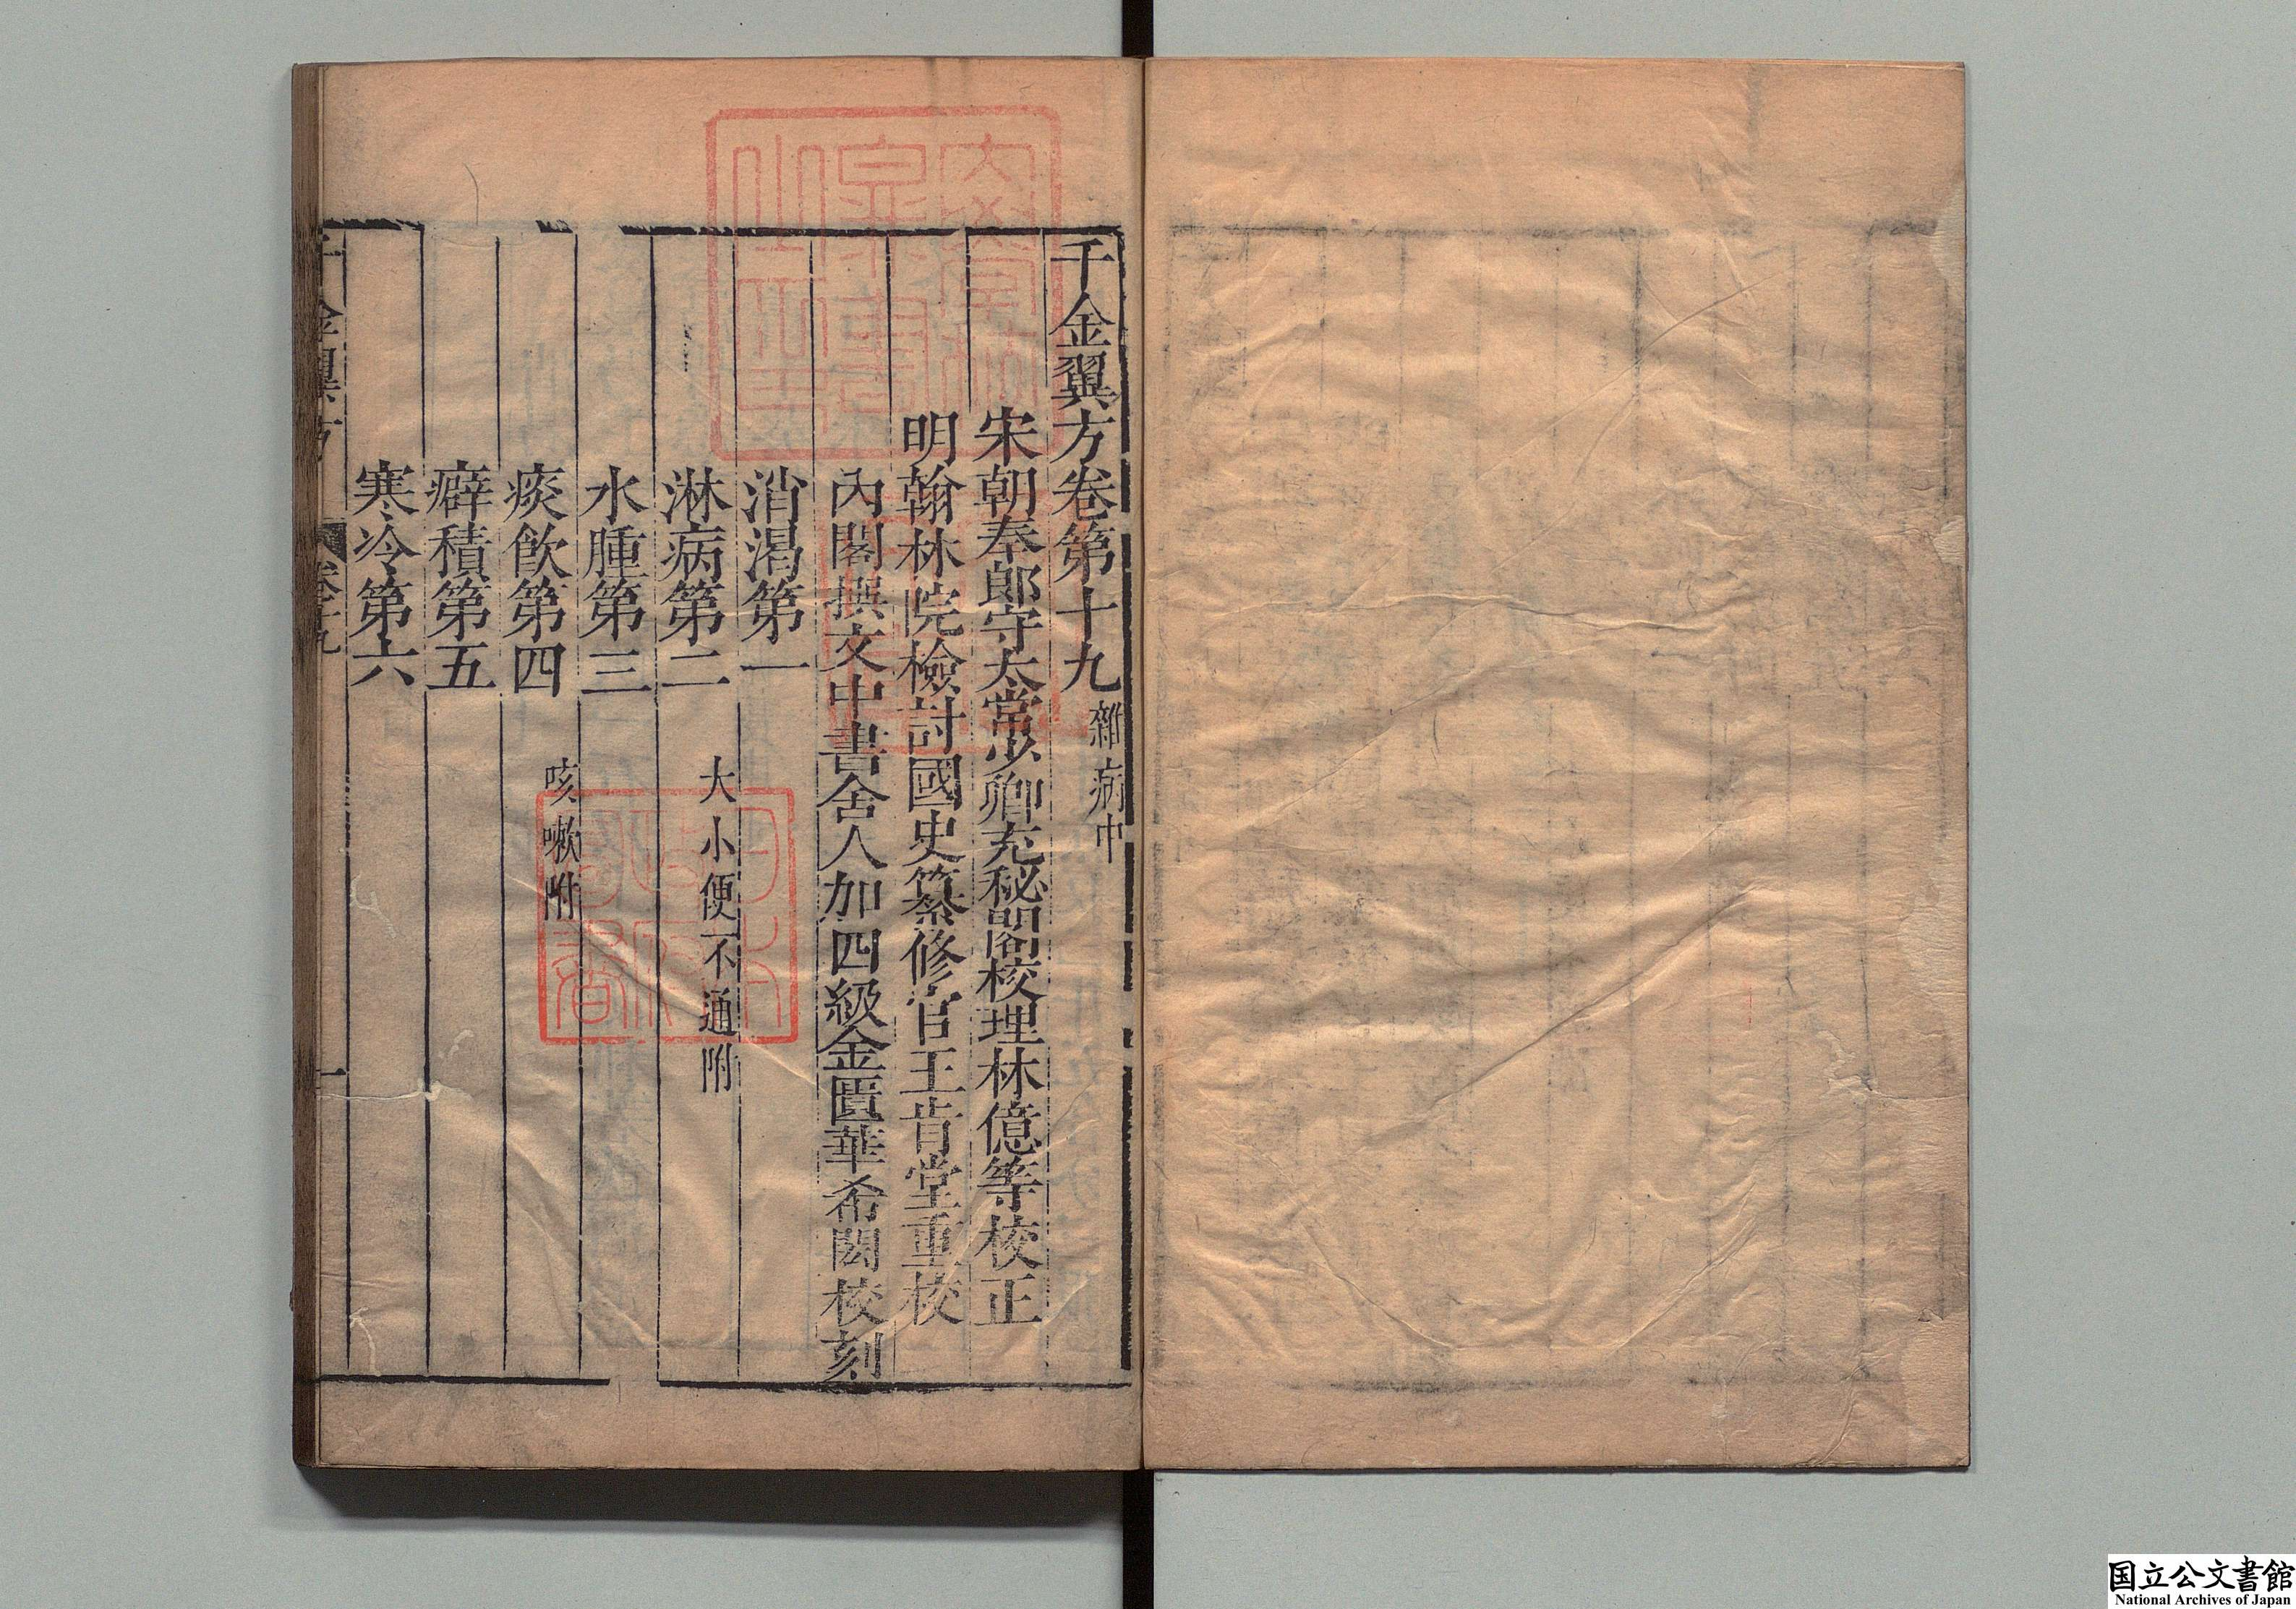 千金翼方卷第十九 雜病中
宋朝奉郎守太常少卿充秘閣校理林億等校正
明翰林院檢討國史纂修官王肯堂重校
內閣撰文中書舍人加四級金匱華希閎校刻
消渴第一
淋病第二 大小便不通附
水腫第三
痰飲第四 咳嗽附
癖積第五
寒冷第六
千金翼方 卷十九 一
国立公文書館
National Archives of Japan